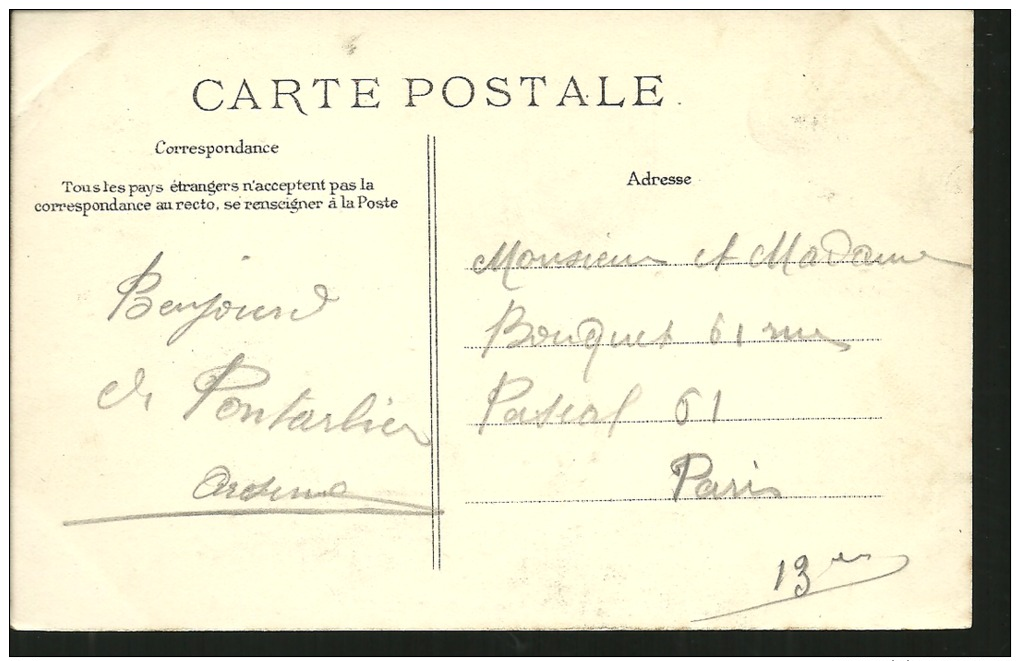 CARTE POSTALE
Correspondance
Tous les pays étrangers n'acceptent pas la
correspondance au recto, se renseigner à la Poste
Bonjourd
de Pontarlier
Adresse
Monsieur et Madame
Bouquet 61 rue
Pascal 61
Paris
13 em